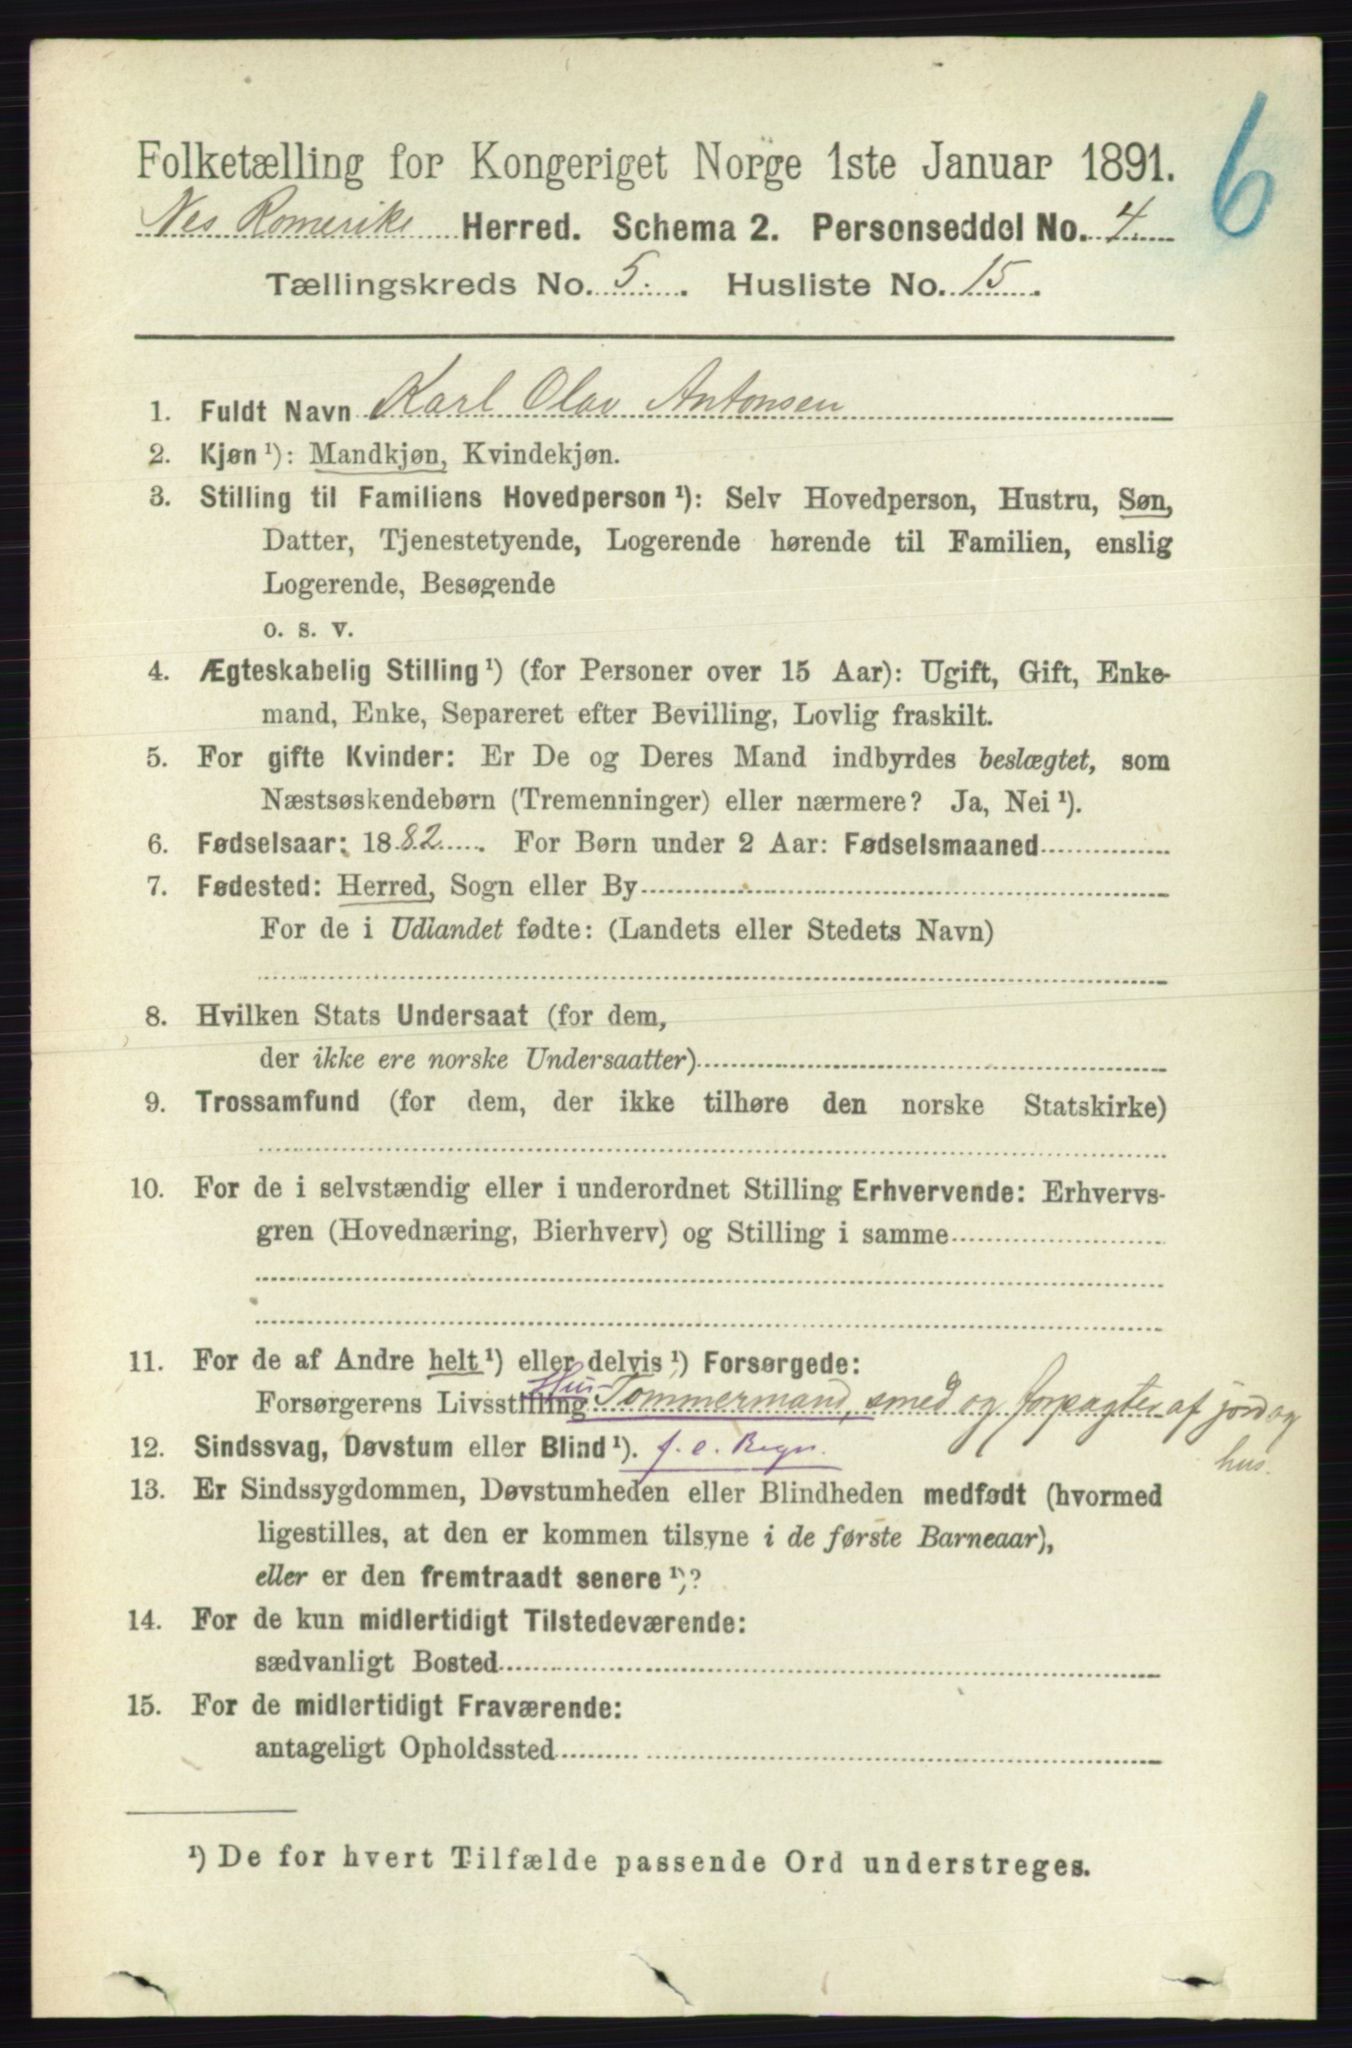 6
Folketælling for Kongeriget Norge 1ste Januar 1891.
Nes Romerike Herred. Schema 2. Personseddel No. 4.
Tællingskreds No. 5. Husliste No. 15.
1. Fuldt Navn Karl Olav Antonsen
2. Kjøn ¹): Mandkjøn, Kvindekjøn.
3. Stilling til Familiens Hovedperson ¹): Selv Hovedperson, Hustru, Søn,
Datter, Tjenestetyende, Logerende hørende til Familien, enslig
Logerende, Besøgende
o. s. v.
4. Ægteskabelig Stilling ¹) (for Personer over 15 Aar): Ugift, Gift, Enke-
mand, Enke, Separeret efter Bevilling, Lovlig fraskilt.
5. For gifte Kvinder: Er De og Deres Mand indbyrdes beslægtet, som
Næstsøskendebørn (Tremenninger) eller nærmere? Ja, Nei ¹).
6. Fødselsaar: 1882. For Børn under 2 Aar: Fødselsmaaned
7. Fødested: Herred, Sogn eller By
For de i Udlandet fødte: (Landets eller Stedets Navn)
8. Hvilken Stats Undersaat (for dem,
der ikke ere norske Undersaatter)
9. Trossamfund (for dem, der ikke tilhøre den norske Statskirke)
10. For de i selvstændig eller i underordnet Stilling Erhvervende: Erhvervs-
gren (Hovednæring, Bierhverv) og Stilling i samme
11. For de af Andre helt ¹) eller delvis ¹) Forsørgede:
Hus-
Forsørgerens Livsstilling Tømmermand, smed og forpagter af jord og
hus.
12. Sindssvag, Døvstum eller Blind ¹). f. e. Regn.
13. Er Sindssygdommen, Døvstumheden eller Blindheden medfødt (hvormed
ligestilles, at den er kommen tilsyne i de første Barneaar),
eller er den fremtraadt senere ¹)?
14. For de kun midlertidigt Tilstedeværende:
sædvanligt Bosted
15. For de midlertidigt Fraværende:
antageligt Opholdssted
¹) De for hvert Tilfælde passende Ord understreges.